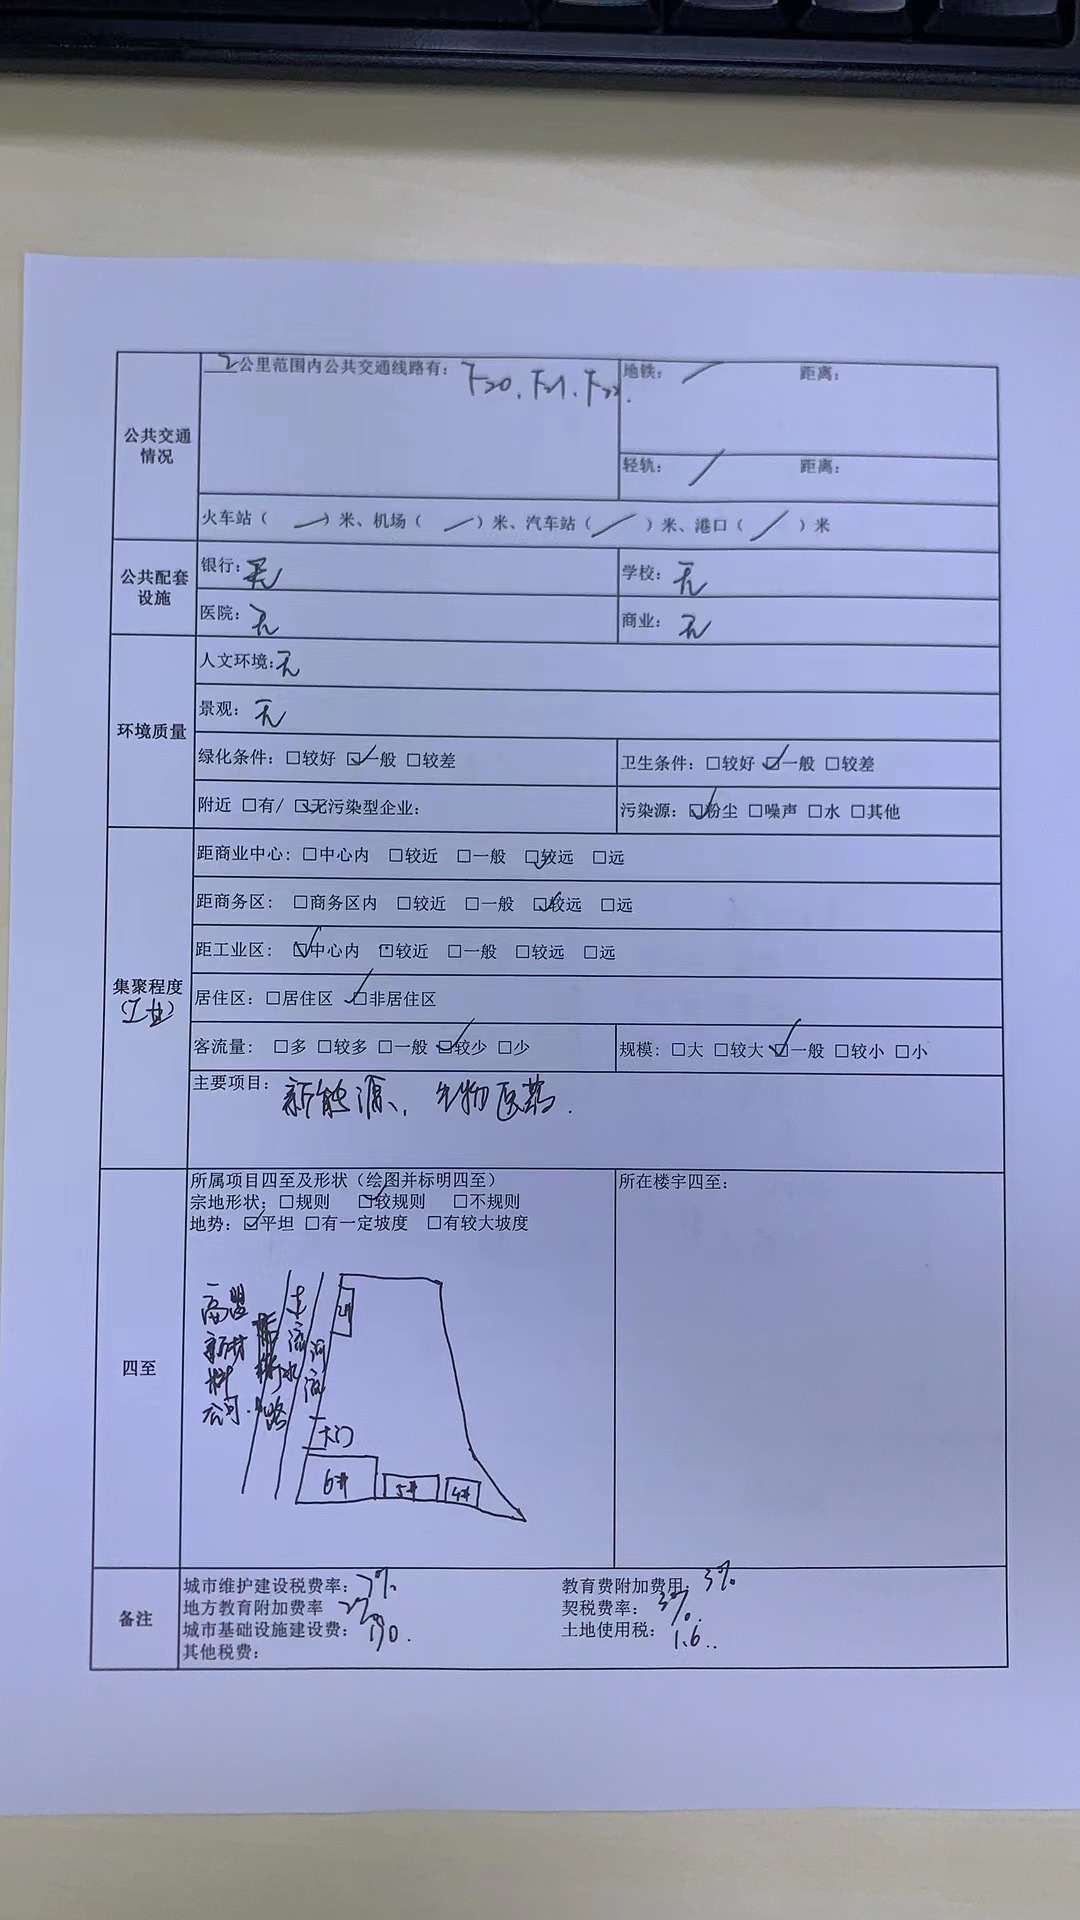 2公里范围内公共交通线路有：F20、F21、F22.
地铁： / 距离：
公共交通情况
轻轨： / 距离：
火车站（ / ）米、机场（ / ）米、汽车站（ / ）米、港口（ / ）米
公共配套设施
银行：无 学校：无
医院：无 商业：无
环境质量
人文环境：无
景观：无
绿化条件：□较好 ☑一般 □较差 卫生条件：□较好 ☑一般 □较差
附近 □有/ ☑无污染型企业： 污染源：☑粉尘 □噪声 □水 □其他
集聚程度
(工业)
距商业中心：□中心内 □较近 □一般 ☑较远 □远
距商务区：□商务区内 □较近 □一般 ☑较远 □远
距工业区：☑中心内 □较近 □一般 □较远 □远
居住区：□居住区 ☑非居住区
客流量：□多 □较多 □一般 ☑较少 □少 规模：□大 □较大 ☑一般 □较小 □小
主要项目：新能源、生物医药.
四至
所属项目四至及形状（绘图并标明四至）
宗地形状：□规则 ☑较规则 □不规则
地势：☑平坦 □有一定坡度 □有较大坡度
所在楼宇四至：
高盟新材料公司.
大门
6# 5# 4#
备注
城市维护建设税费率：7% 教育费附加费用：3%
地方教育附加费率 2% 契税费率：3%.
城市基础设施建设费：190. 土地使用税：1.6..
其他税费：